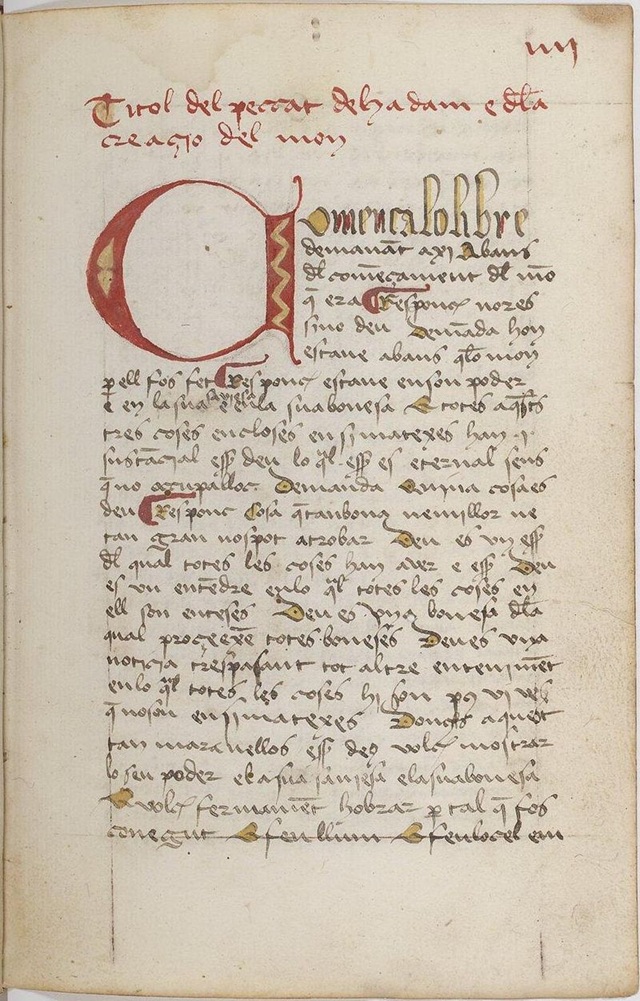 iiij
Titol del peccat de hadam e dla
creacio del mon
Comença lo libre
demanāt axi Abans
dl comēçament dl mō
q̄ era Respōnc nores
sino deu Demāda hon
estaue abans q̄lo mon
p ell fos fet Respōnc estaue en son poder
e en la sua saviesa e en la sua bonesa E totes aq̄sts
tres coses encloses en si matexes han
sustācial ess̄ deu lo q̄l ess̄ es eternal sens
q̄ no ocupa lloc Demanda quina cosa es
deu Respōnc Cosa q̄ tan bona ne millor ne
tan gran nos pot atrobar Deu es vn ess̄
dl qual totes les coses han aver e ess̄ Deu
es vn entēdre en lo q̄l totes les coses en
ell son enteses Deu es vna bonesa dla
qual proçeexē totes boneses Deu es vna
noticia trespasant tot altre entenimēt
en lo q̄l totes les coses hi son
q̄ no son en si matexes Donchs aquest
tan marauellos ess̄ de volc mostrar
lo seu poder e la sua saniesa e la sua bonesa
E volc fermamēt hobrar p tal q̄ fos
conegut E feu llum E feu lo cel em